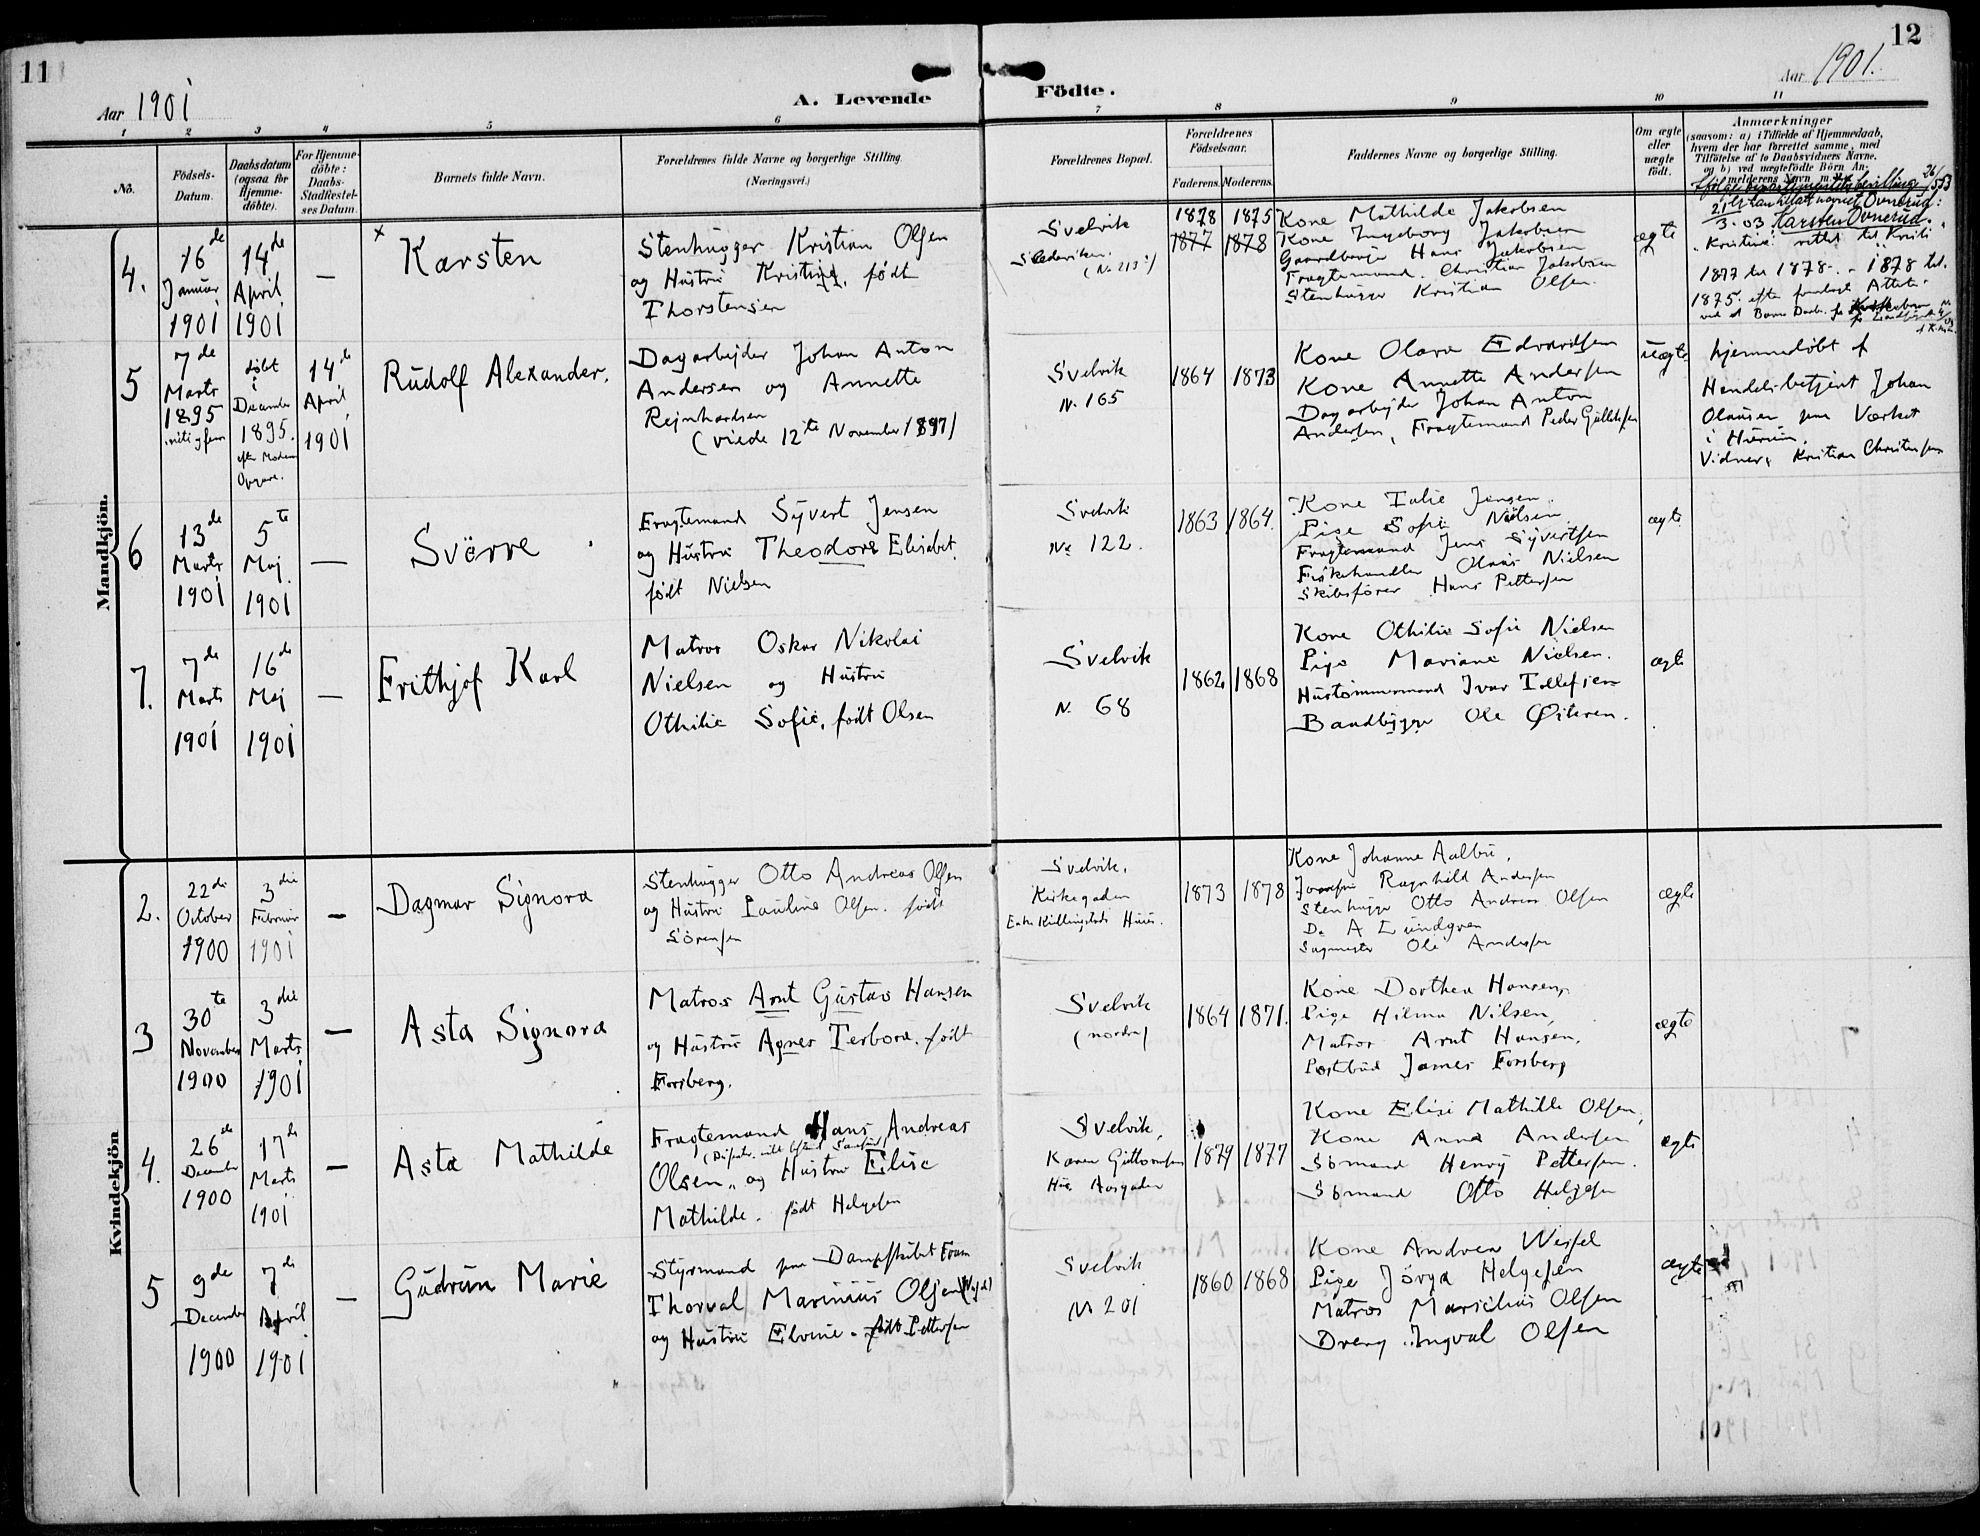 11
12
Aar 1901
A. Levende Födte.
Aar 1901.
1 2 3 4 5 6 7 8 9 10 11
No.
Födsels-
Datum.
Daabsdatum
(ogsaa for
Hjemme-
döbte).
For Hjemme-
döbte:
Daabs-
Stadfæstel-
ses Datum.
Barnets fulde Navn.
Forældrenes fulde Navne og borgerlige Stilling.
(Næringsvei.)
Forældrenes Bopæl.
Forældrenes
Födselsaar.
Faderens. Moderens.
Faddernes Navne og borgerlige Stilling.
Om ægte
eller
uægte
født.
Anmærkninger
(saasom: a) i Tilfælde af Hjemmedaab,
hvem der har forrettet samme, med
Tilföielse af to Daabsvidners Navne,
og b) ved uægtefödte Börn An-
melderens Navn m. m.
Mandkjön.
4.
16de
Januar
1901
14de
April
1901
—
× Karsten
Stenhugger Kristian Olsen
og Hustru Kristine, født
Thorstensen
Svelvik
(No 213)
1878 1875
1877 1878
Kone Mathilde Jakobsen
Kone Ingeborg Jakobsen
Gaardbruger Hans Jakobsen
Fragtemand Christian Jakobsen
Stenhugger Kristian Olsen.
ægte
21
3.03 Karsten Ovnerud.
"Kristine" rettet til Kristi
1877 til 1878 - 1878 til
1875 efter Attester
5
7de
Marts
1895
døbt
i
December
1895.
efter Moderens
Opgave.
14de
April
1901
Rudolf Alexander.
Dagarbejder Johan Anton
Andersen og Annette
Rejnhardsen
(viede 12te November 1897)
Svelvik
N. 165
1864 1873
Kone Olava Edvardsen
Kone Annette Andersen
Dagarbejder Johan Anton
Andersen, Fragtemand Peder Gulliksen
uægte
hjemmedøbt af
Handelsbetjent Johan
Olausen paa Værket
i Hurum.
Vidner, Kristian Christensen
6
13de
Marts
1901
5te
Maj
1901
—
Sverre
Fragtemand Syvert Jensen
og Hustru Theodora Elisabet
født Nielsen
Svelvik
No 122.
1863 1864.
Kone Talie Jensen.
Pige Sofie Nielsen
Fragtemand Jens Syvertsen
Fiskehandler Olaus Nielsen
Skibsfører Hans Pettersen
ægte
7.
7de
Marts
1901
16de
Maj
1901
—
Frithjof Karl
Matros Oskar Nikolai
Nielsen og Hustru
Othilie Sofie, født Olsen
Svelvik
N. 68
1862 1868
Kone Othilie Sofie Nielsen
Pige Mariane Nielsen.
Hustømmermand Ivar Tollefsen
Baadbygger Ole Øiteren.
ægte
Kvindekjön
2.
22de
October
1900
3die
Februar
1901
—
Dagmar Signora
Stenhugger Otto Andreas Olsen
og Hustru Pauline Olsen. født
Sørensen
Svelvik.
Kirkegaden
Enke Killingstads Huus.
1873 1878
Kone Johanne Aalbu.
Ragnhild Andersen
Stenhugger Otto Andreas Olsen
Do A Lundgren
Sagmester Ole Andersen
ægte
3
30te
November
1900
3die
Marts
1901
—
Asta Signora
Matros Arnt Gustav Hansen
og Hustru Agnes Terbora. født
Forsberg.
Svelvik
(nordre)
1864 1871.
Kone Dorthea Hansen,
Pige Hilma Nilsen,
Matros Arnt Hansen,
Postbud James Forsberg
ægte
4.
26de
December
1900
17de
Marts
1901
—
Asta Mathilde
Fragtemand Hans Andreas
Olsen, og Hustru Elise
Mathilde. født Helgesen
Svelvik,
Karen Guttormsens
Hus Aasgaden
1879 1877
Kone Elise Mathilde Olsen,
Kone Anna Andersen
Sømand Henry Pettersen.
Sømand Otto Helgesen
ægte
5
9de
December
1900
7de
April
1901
—
Gudrun Marie
Styrmand paa Dampskibet Fram
Thorval Marinius Olsen
og Hustru Elvine. født Pettersen
Svelvik
No 201
1860 1868
Kone Andrea Wessel
Pige Jörga Helgesen
Matros Marselius Olsen
Dreng Ingval Olsen
ægte